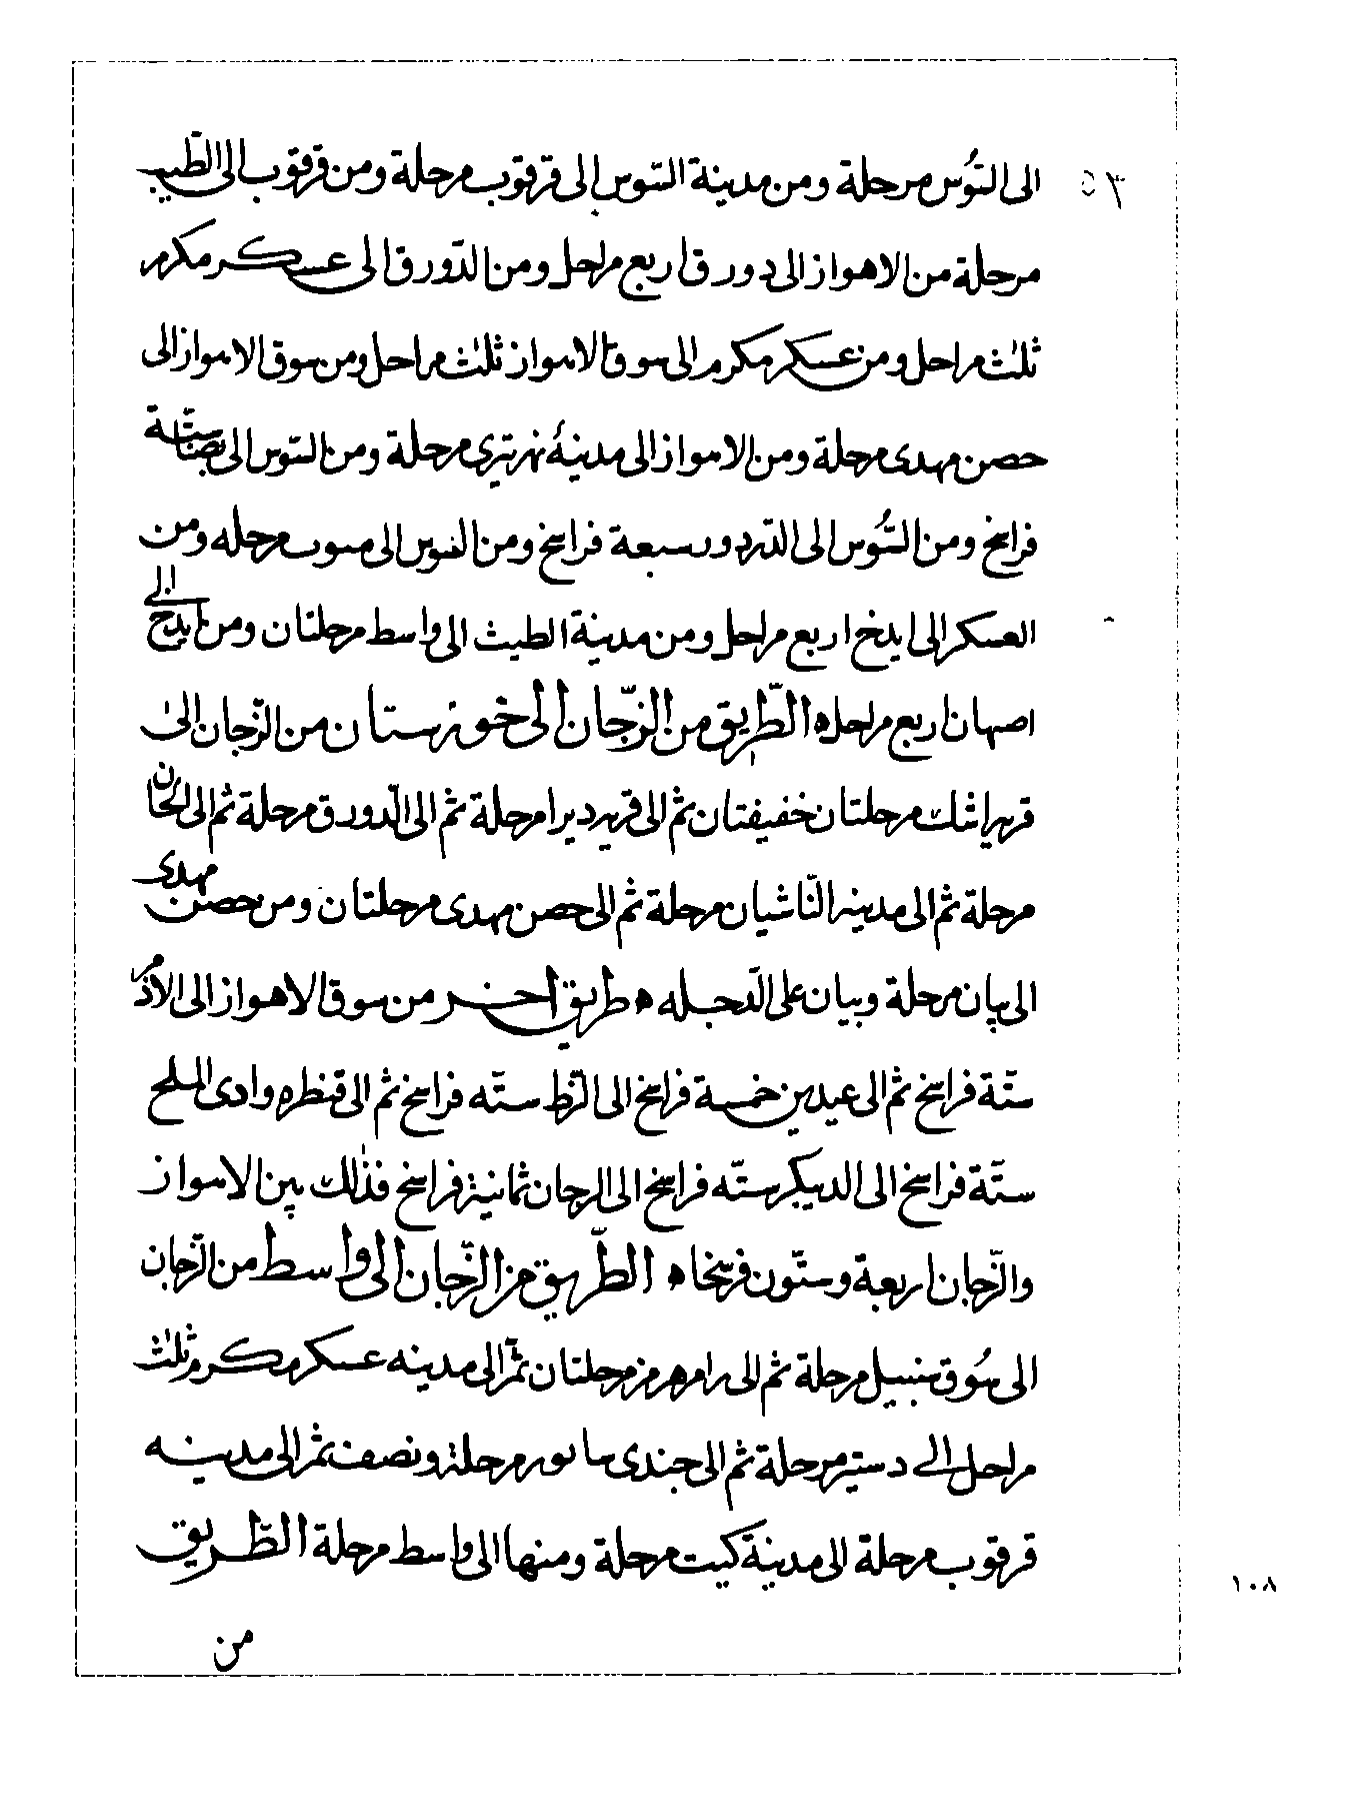 ٥٣
الى السُّوس مرحلة ومن مدينة السّوس الى قرقوب مرحلة ومن قرقوب الى الطّيب
مرحلة من الاهواز الى دورق اربع مراحل ومن الدّورق الى عسكر مكرم
ثلٰث مراحل ومن عسكر مكرم الى سوق الاهواز ثلٰث مراحل ومن سوق الاهواز الى
حصن مهدى مرحلة ومن الاهواز الى مدينة نهر تيرى مرحلة ومن السّوس الى بصنّا ستّة
فراسخ ومن السُّوس الى سبعة فراسخ ومن السوس الى متوب مرحله ومن
العسكر الى ايدخ اربع مراحل ومن مدينة الطيث الى واسط مرحلتان ومن ايدخ الى
اصبهان اربع مراحل ه الطّريق من الرّجان الى خوزستان من الرّجان الىٰ
مرحلتان خفيفتان ثم الى قريه ديرا مرحلة ثم الى الدّورق مرحلة ثم الى الخان
مرحلة ثم الى مدينه النّاشيان مرحلة ثم الى حصن مهدى مرحلتان ومن حصن مهدى
الى بيان مرحلة وبيان على الدّجله ه طريق اخر من سوق الاهواز الى
ستّة فراسخ ثم الى عبدين خمسة فراسخ الى الزّط ستّه فراسخ ثم الى قنطره وادى الملح
ستّة فراسخ الى ستّه فراسخ الى الرجان ثمانية فراسخ فذٰلك بين الاهواز
والرّجان اربعة وستّون فرسخا ه الطّريق من الرّجان الى واسط من الرّجان
الى سُوق سنبيل مرحلة ثم الى رامهرمز مرحلتان ثمّ الى مدينه عسكر مكرم ثلٰث
مراحل الى دستر مرحلة ثم الى جندى سابور مرحلة ونصف ثم الى مدينه
قرقوب مرحلة الى مدينة كيت مرحلة ومنها الى واسط مرحلة الطّريق
من
١٠٨